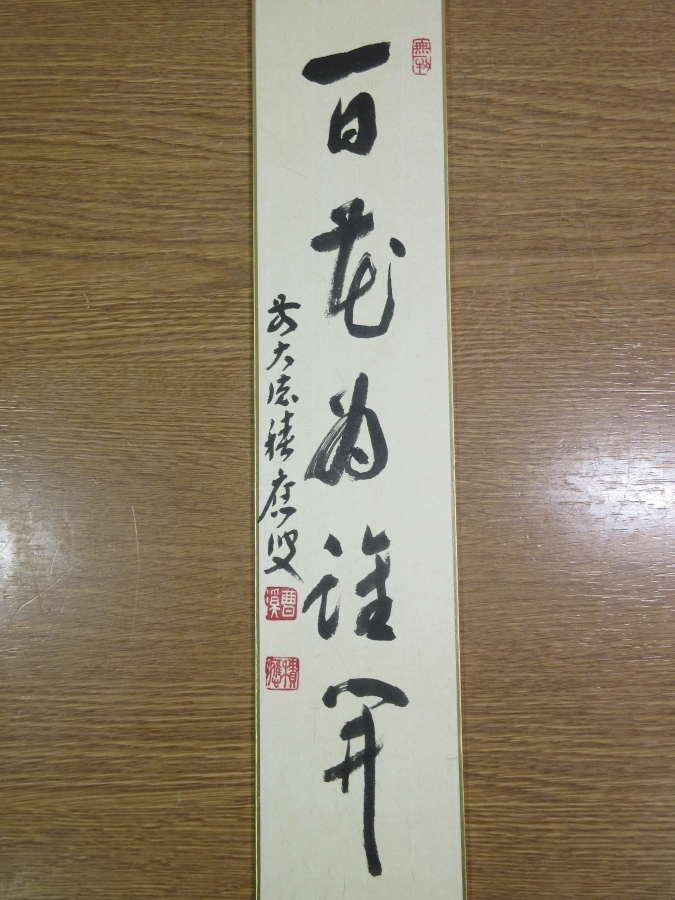 百花為誰開
前大徳積應叟
曹溪
積應